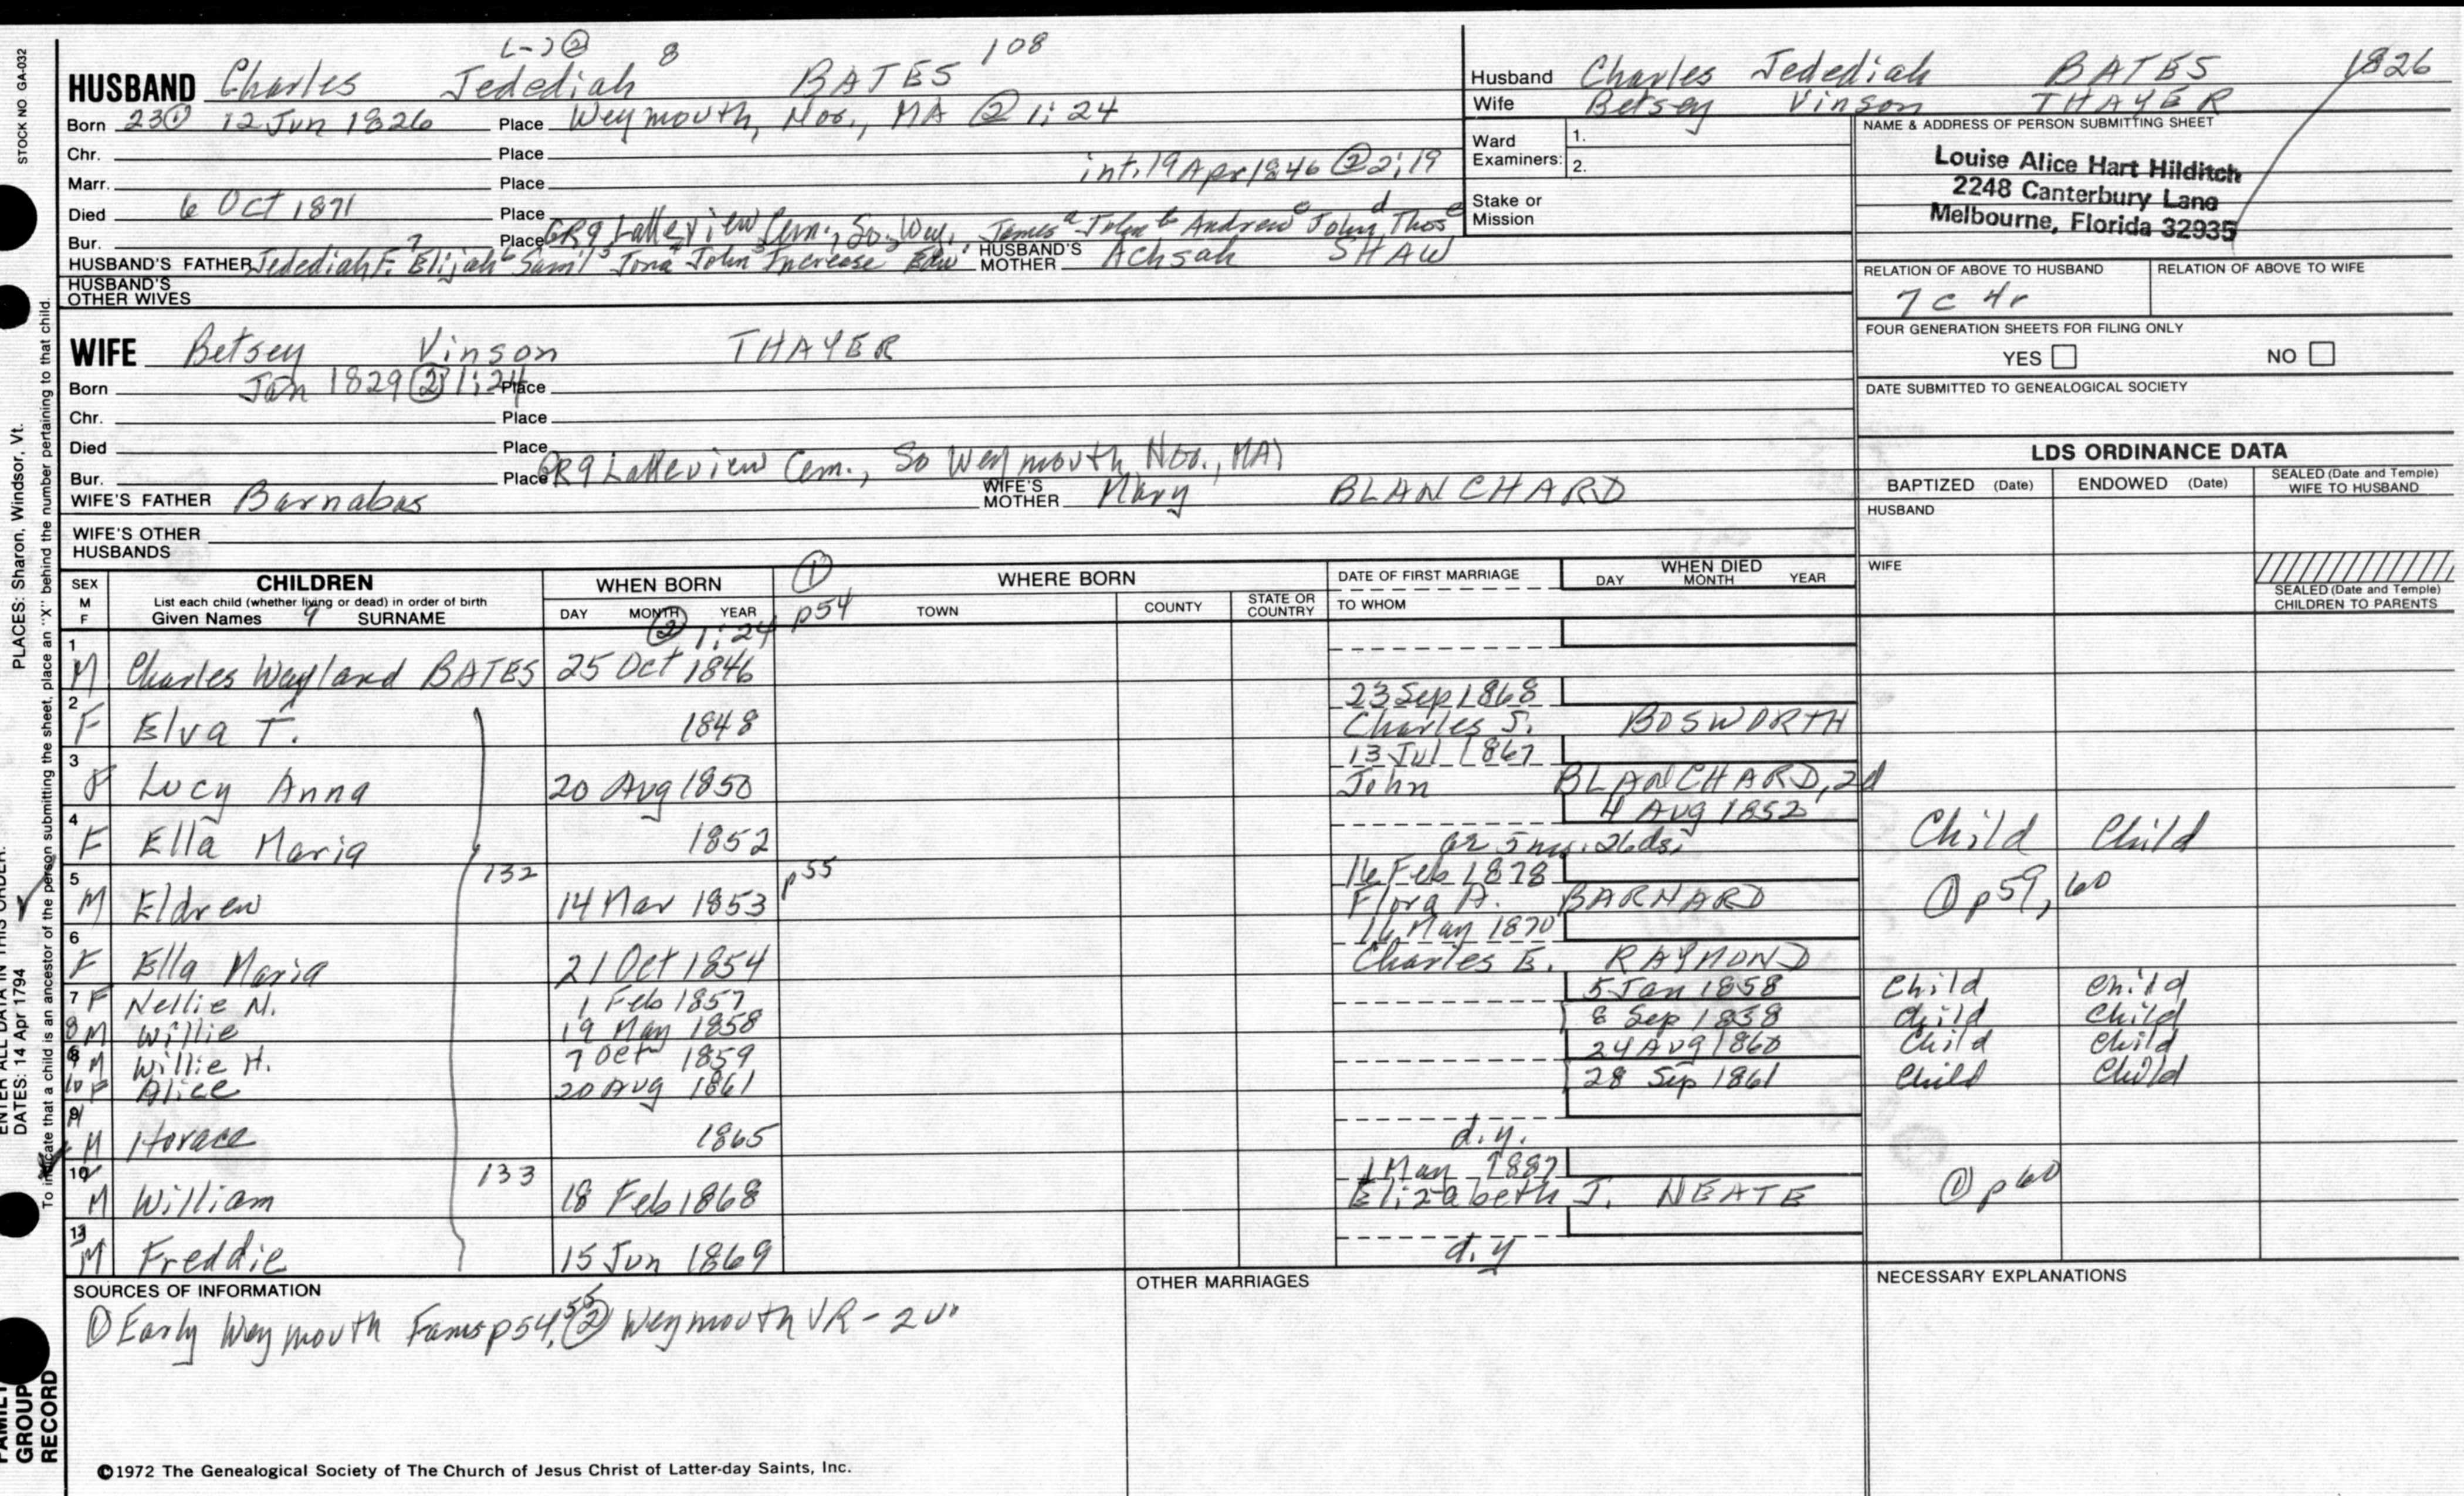 (-) ② 8 108
HUSBAND Charles Jedediah BATES
Born 23① 12 Jun 1826 Place Weymouth, Nor., MA ② 1:24
Chr. Place
Marr. Place int. 19 Apr 1846 ② 2:19
Died 6 Oct 1871 Place
Bur. Place GR9 Lakeview Cem., So. Wey. James a John b Andrew c John d Thos e
HUSBAND'S FATHER Jedediah F. 7 Elijah 6 Saml 5 Jona 4 John 3 Increase 2 Edw 1 HUSBAND'S MOTHER Achsah SHAW
HUSBAND'S OTHER WIVES
WIFE Betsey Vinson THAYER
Born Jan 1829 ② 1:24 Place
Chr. Place
Died Place
Bur. Place GR9 Lakeview Cem., So Weymouth, Nor., MA
WIFE'S FATHER Barnabas WIFE'S MOTHER Mary BLANCHARD
WIFE'S OTHER HUSBANDS
Husband Charles Jedediah BATES 1826
Wife Betsey Vinson THAYER
Ward Examiners: 1.
2.
Stake or Mission
NAME & ADDRESS OF PERSON SUBMITTING SHEET
Louise Alice Hart Hilditch
2248 Canterbury Lane
Melbourne, Florida 32935
RELATION OF ABOVE TO HUSBAND RELATION OF ABOVE TO WIFE
7 c 4r
FOUR GENERATION SHEETS FOR FILING ONLY
YES NO
DATE SUBMITTED TO GENEALOGICAL SOCIETY
LDS ORDINANCE DATA
BAPTIZED (Date) ENDOWED (Date) SEALED (Date and Temple) WIFE TO HUSBAND
HUSBAND
WIFE
SEALED (Date and Temple) CHILDREN TO PARENTS
SEX M F CHILDREN WHEN BORN ① WHERE BORN DATE OF FIRST MARRIAGE WHEN DIED
List each child (whether living or dead) in order of birth
Given Names 9 SURNAME DAY MONTH YEAR p54 TOWN COUNTY STATE OR COUNTRY TO WHOM DAY MONTH YEAR
② 1:24
1 M Charles Wayland BATES 25 Oct 1846
23 Sep 1868
2 F Elva T. 1848 Charles S. BOSWORTH
13 Jul 1867
3 F Lucy Anna 20 Aug 1850 John BLANCHARD, 2d
4 Aug 1852
4 F Ella Maria 1852 ae 5 ms. 26 ds. Child Child
132 p55 16 Feb 1878
5 M Eldrew 14 Mar 1853 Flora A. BARNARD ① p59, 60
16 May 1870
6 F Ella Maria 21 Oct 1854 Charles E. RAYMOND
7 F Nellie N. 1 Feb 1857 5 Jan 1858 Child Child
8 M Willie 19 May 1858 8 Sep 1858 Child Child
M Willie H. 7 Oct 1859 24 Aug 1860 Child Child
10 F Alice 20 Aug 1861 28 Sep 1861 Child Child
M Horace 1865 d.y.
133 1 Mar 1887
M William 18 Feb 1868 Elizabeth J. NEATE ① p60
13 M Freddie 15 Jun 1869 d.y
SOURCES OF INFORMATION OTHER MARRIAGES NECESSARY EXPLANATIONS
① Early Weymouth Fams p54, 55 ② Weymouth VR - 2 v.
©1972 The Genealogical Society of The Church of Jesus Christ of Latter-day Saints, Inc.
STOCK NO GA-032
PLACES: Sharon, Windsor, Vt.
ENTER ALL DATA IN THIS ORDER:
DATES: 14 Apr 1794
To indicate that a child is an ancestor of the person submitting the sheet, place an "X" behind the number pertaining to that child.
FAMILY GROUP RECORD